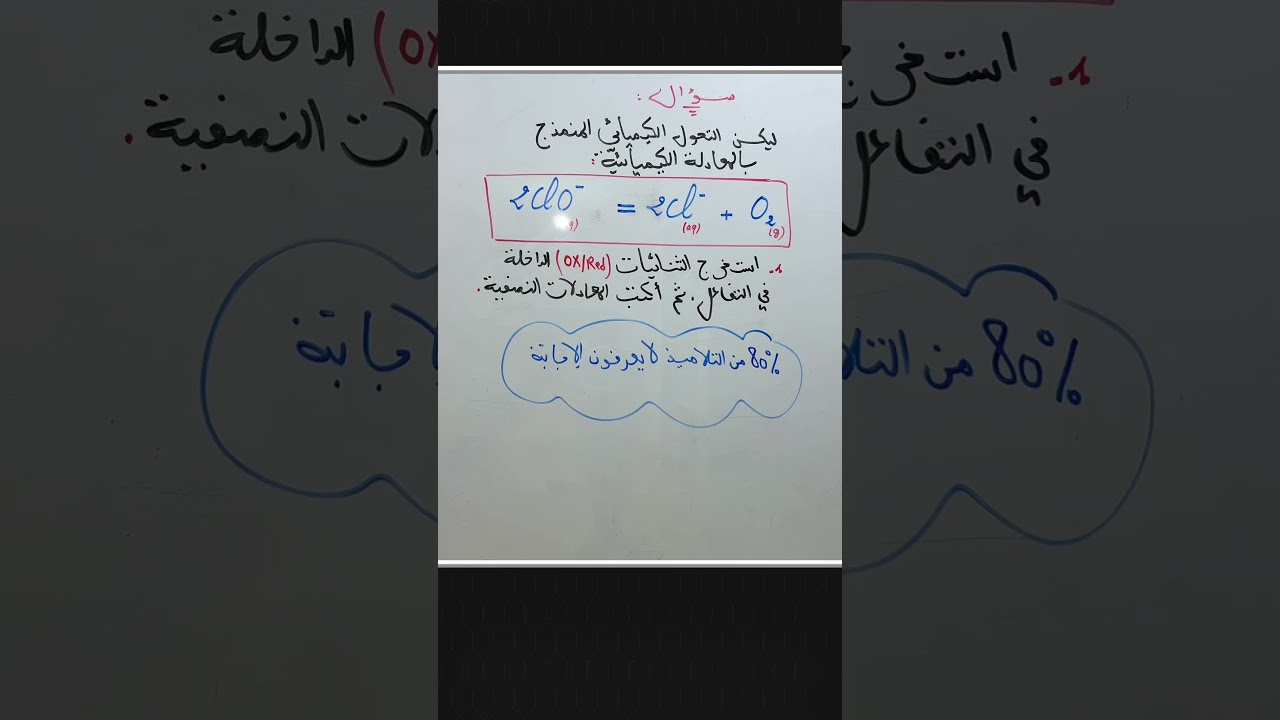 سؤال :
ليكن التحول الكيميائي المنمذج
بالمعادلة الكيميائيّة :
2ClO⁻ (aq) = 2Cl⁻ (aq) + O₂ (g)
1. استخرج الثنائيات (OX/Red) الداخلة
في التفاعل، ثم أكتب المعادلات النصفية.
80% من التلاميذ لا يعرفون الإجابة